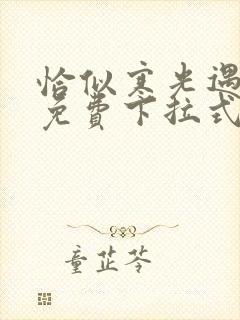 恰似寒光遇
免费下拉式
童芷苓